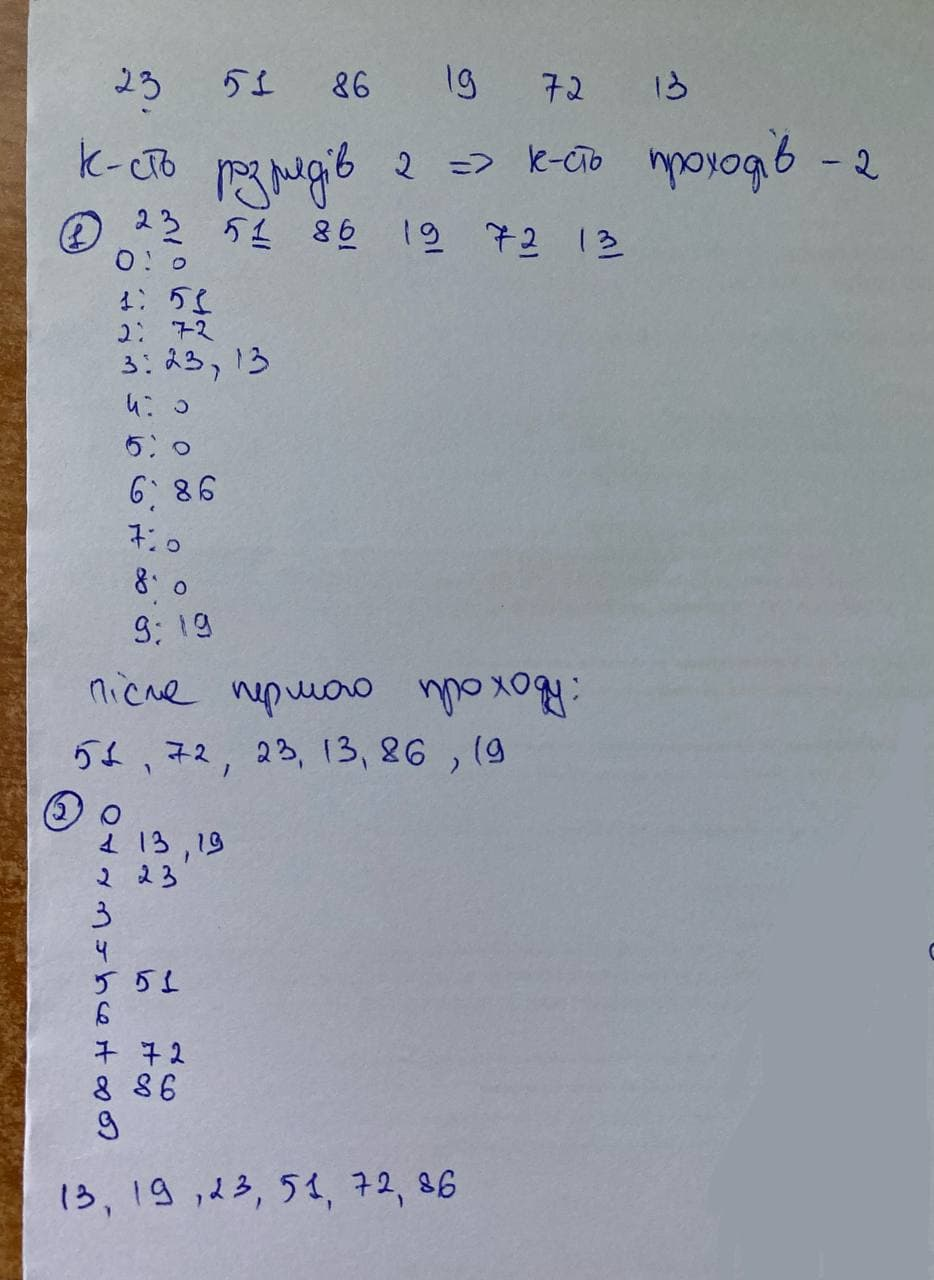 23 51 86 19 72 13
К-сть розрядів 2 => к-сть проходів – 2
① 23 51 86 19 72 13
0: 0
1: 51
2: 72
3: 23, 13
4: 0
5: 0
6: 86
7: 0
8: 0
9: 19
після першого проходу:
51, 72, 23, 13, 86, 19
② 0
1 13, 19
2 23
3
4
5 51
6
7 72
8 86
9
13, 19, 23, 51, 72, 86